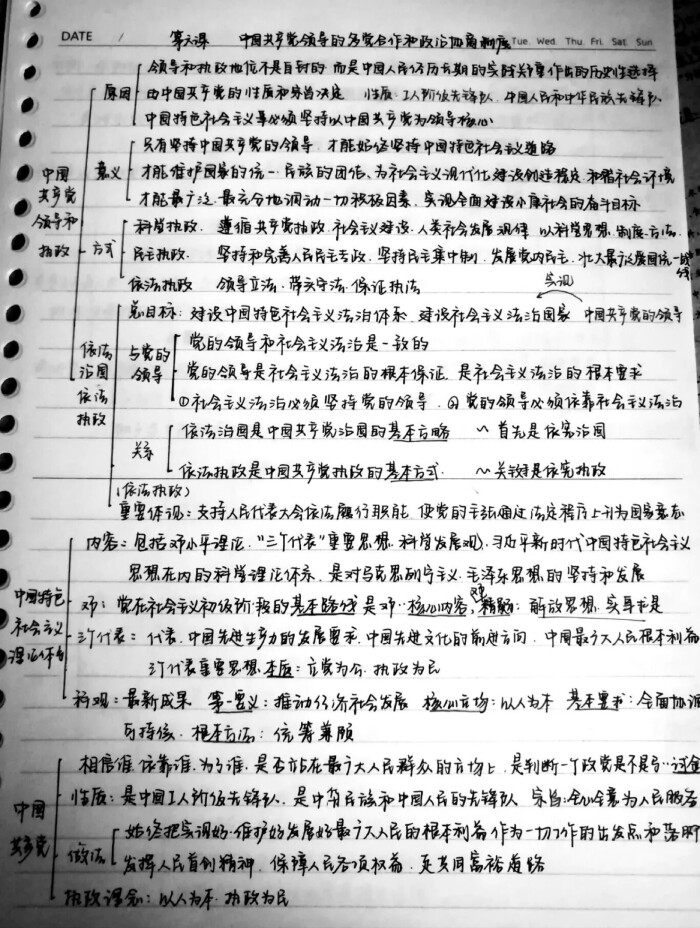 DATE /
第六课 中国共产党领导的多党合作和政治协商制度 Tue. Wed. Thu. Fri. Sat. Sun
领导和执政地位不是自封的 而是中国人民经历长期的实践 作出的历史性选择
原因 由中国共产党的性质和宗旨决定 性质：工人阶级先锋队、中国人民和中华民族先锋队
中国特色社会主义事业必须坚持以中国共产党为领导核心
只有坚持中国共产党的领导，才能始终坚持中国特色社会主义道路
意义 才能维护国家的统一、民族的团结、为社会主义现代化建设创造稳定、和谐社会环境
才能最广泛、最充分地调动一切积极因素，实现全面建设小康社会的奋斗目标
中国共产党领导和执政
方式 科学执政. 遵循共产党执政、社会主义建设、人类社会发展规律 以科学思想、制度、方法.
民主执政. 坚持和完善人民民主专政、坚持民主集中制、发展党内民主、壮大最广泛爱国统一战线
依法执政 领导立法、带头守法、保证执法
实现
总目标：建设中国特色社会主义法治体系、建设社会主义法治国家 中国共产党的领导
依法治国 依法执政
与党的领导 党的领导和社会主义法治是一致的
党的领导是社会主义法治的根本保证，是社会主义法治的根本要求
①社会主义法治必须坚持党的领导，②党的领导必须依靠社会主义法治
关系 依法治国是中国共产党治国的基本方略 ～首先是依宪治国
依法执政是中国共产党执政的基本方式. ～关键是依宪执政
（依法执政）
重要体现：支持人民代表大会依法履行职能，使党的主张通过法定程序上升为国家意志
内容：包括邓小平理论、“三个代表”重要思想、科学发展观、习近平新时代中国特色社会主义
思想在内的科学理论体系，是对马克思列宁主义、毛泽东思想的坚持和发展
中国特色社会主义理论体系
邓：党在社会主义初级阶段的基本路线是邓··核心内容，精髓：解放思想、实事求是
三个代表：代表、中国先进生产力的发展要求、中国先进文化的前进方向、中国最广大人民根本利益
三个代表重要思想本质：立党为公、执政为民
科观：最新成果 第一要义：推动经济社会发展 核心立场：以人为本 基本要求：全面协调
可持续、根本方法：统筹兼顾
相信谁、依靠谁、为了谁，是否站在最广大人民群众的立场上，是判断一个政党是不是马··试金
中国共产党
性质：是中国工人阶级先锋队、是中华民族和中国人民的先锋队 宗旨：全心全意为人民服务
做法 始终把实现好、维护好发展好最广大人民的根本利益作为一切工作的出发点和落脚
发挥人民首创精神、保障人民各项权益，走共同富裕道路
执政理念：以人为本、执政为民